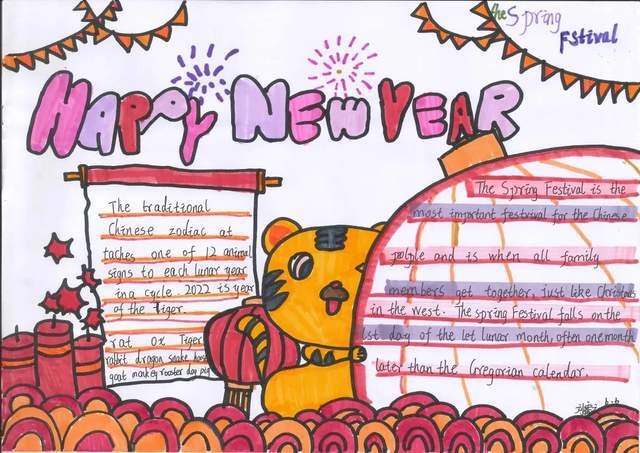 the Spring
Fstival
HAPPY NEW YEAR
The traditional
Chinese zodiac at
taches one of 12 animal
signs to each lunar year
in a cycle. 2022 is year
of the Tiger.
rat ox Tiger
rabbit dragon snake horse
goat monkey rooster dog pig
The Spring Festival is the
most important festvival for the Chinese
people and is when all family
members get together, just like Christmas
in the west. The spring Festival falls on the
1st day of the let lunar month, often one month
later than the Gregorian calendar.